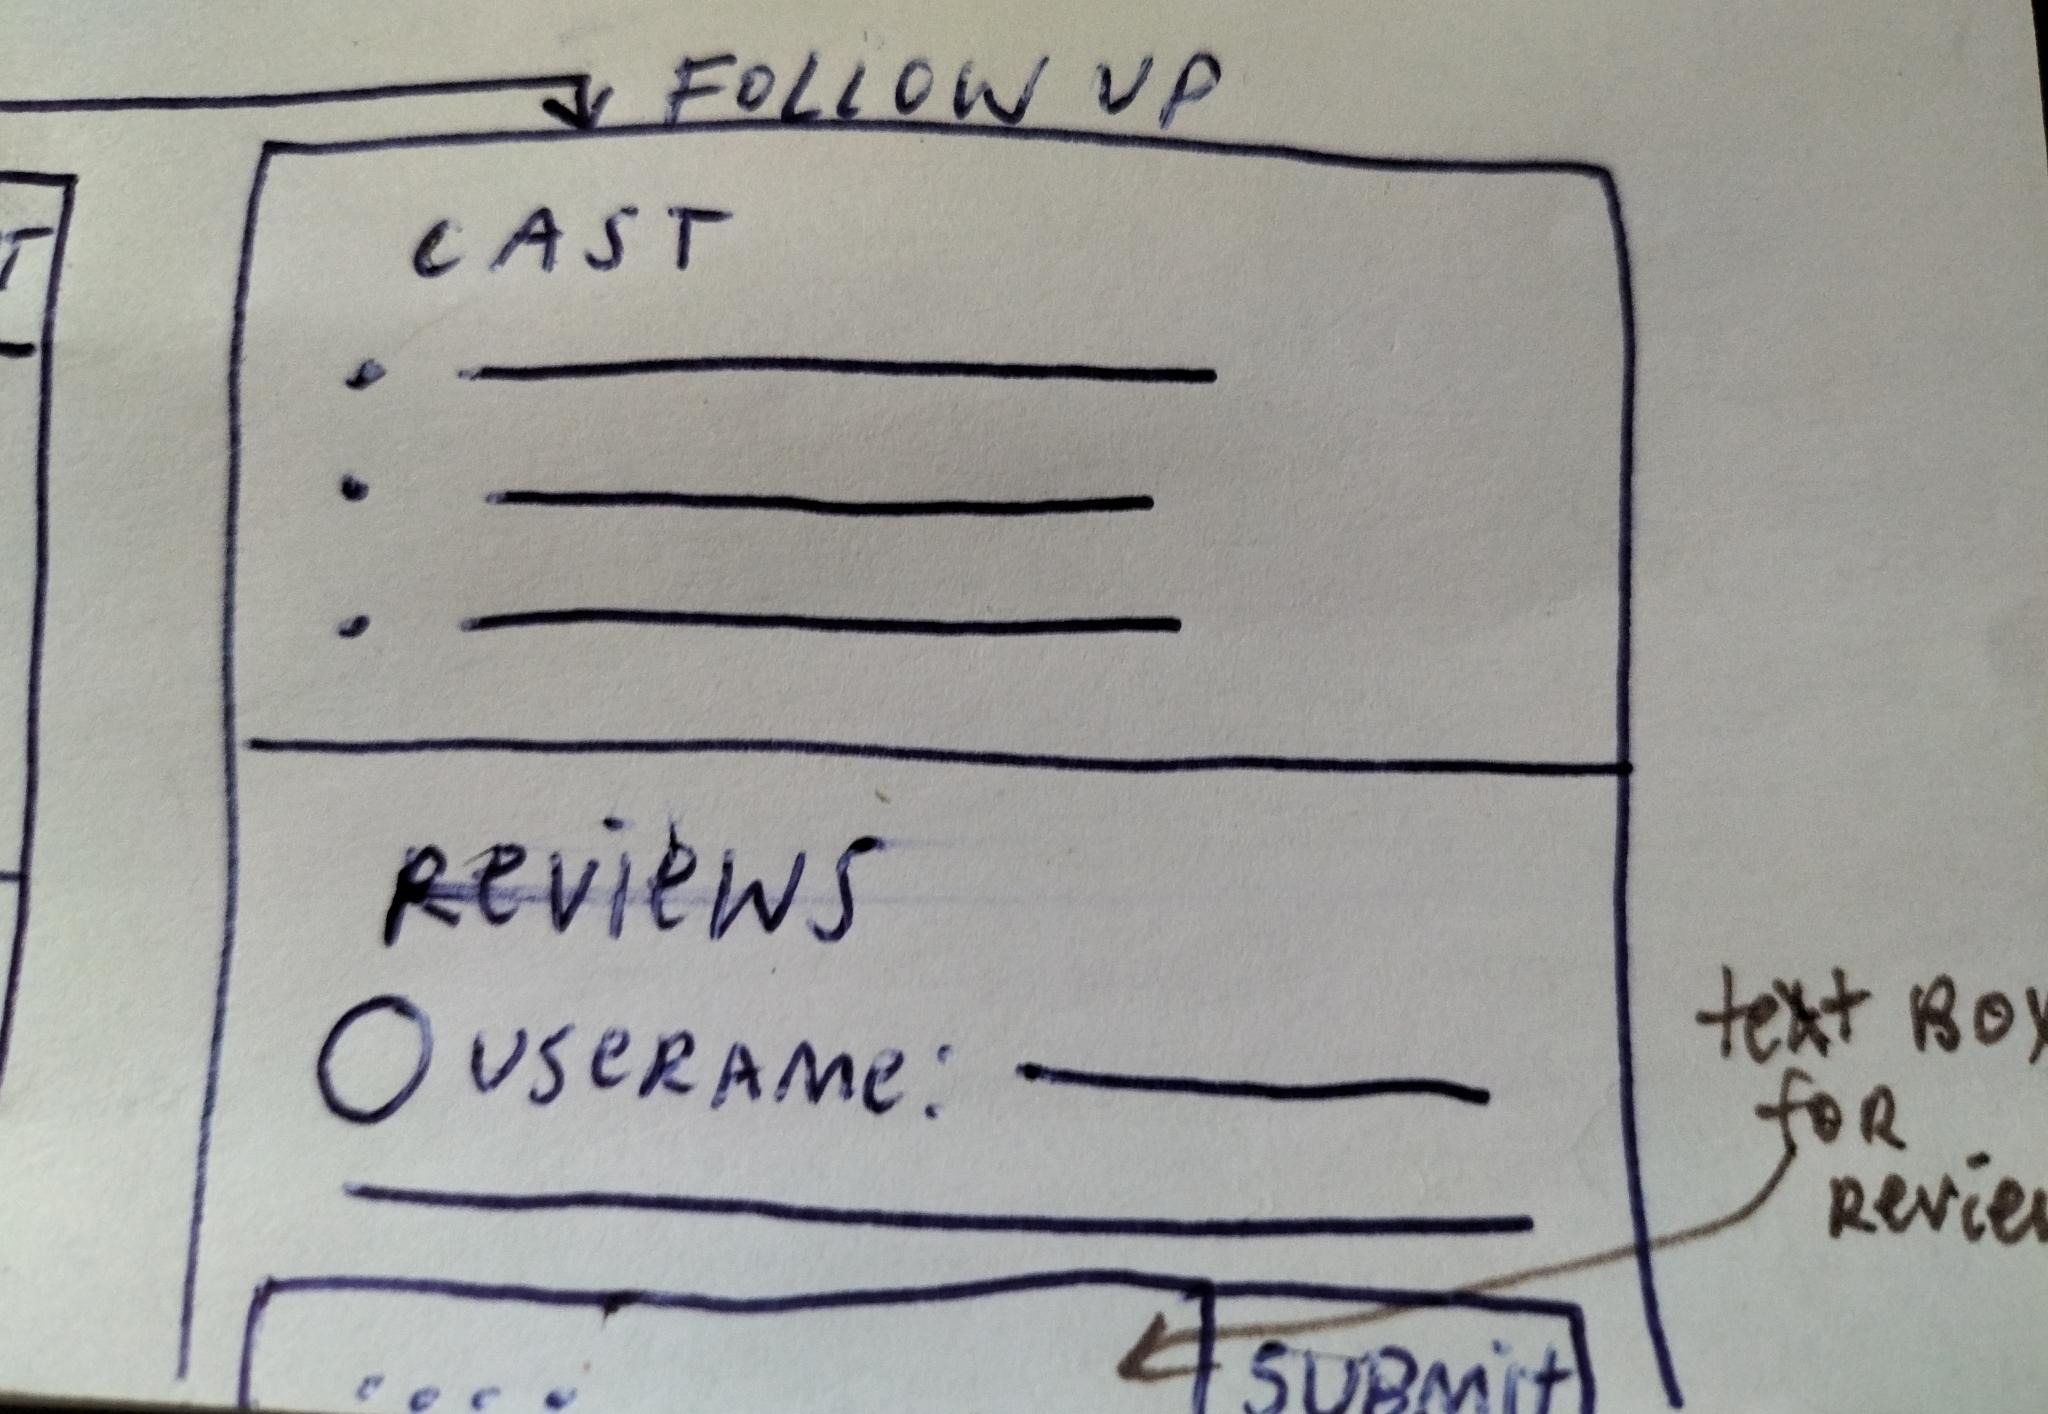 FOLLOW UP
CAST
Reviews
USERAME:
text BOX
for
Review
SUBMit